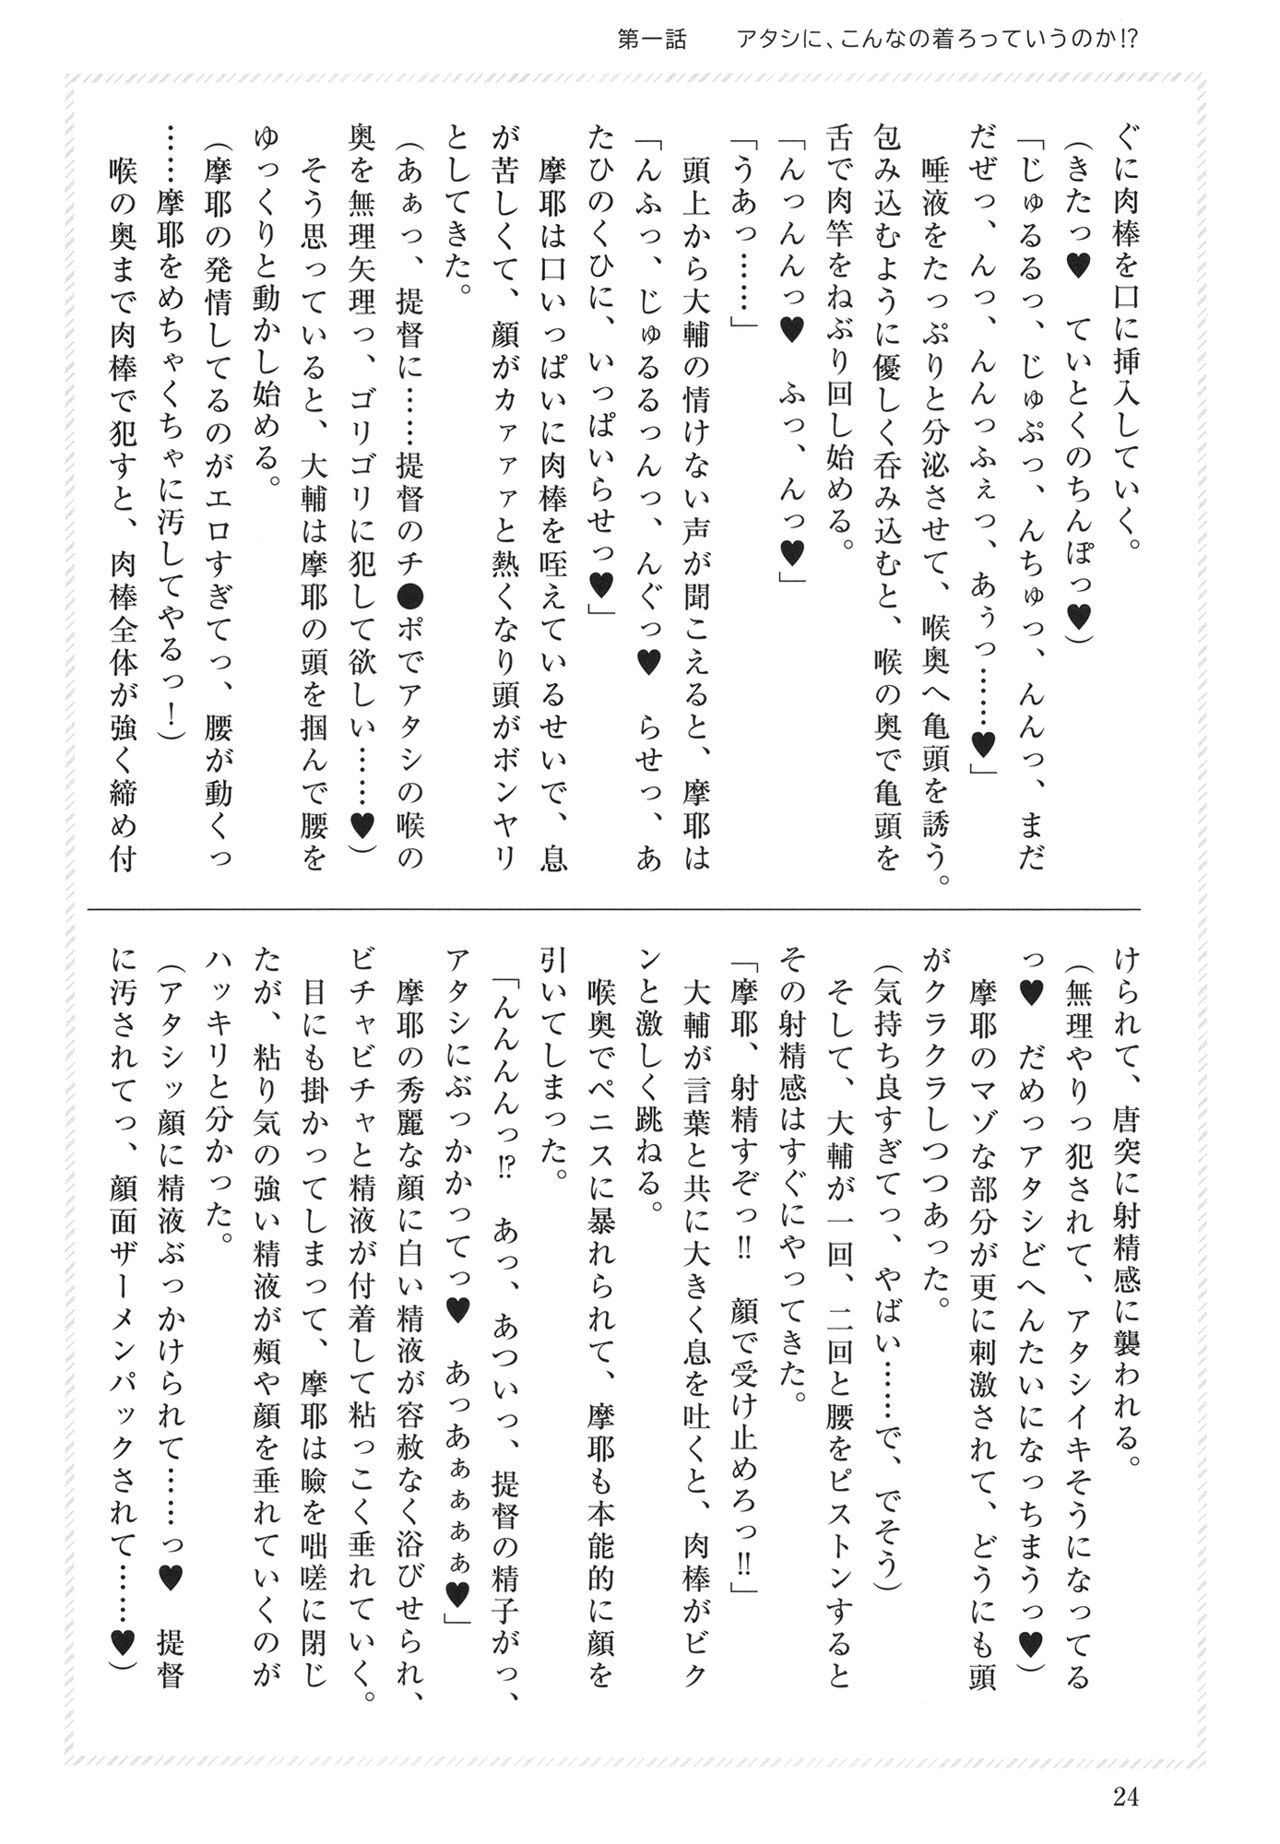 第一話　　アタシに、こんなの着ろっていうのか!?
ぐに肉棒を口に挿入していく。
(きたっ♥　ていとくのちんぽっ♥)
「じゅるるっ、じゅぷっ、んちゅっ、んんっ、まだ
だぜっ、んっ、んんっふぇっ、あぅっ……♥」
　唾液をたっぷりと分泌させて、喉奥へ亀頭を誘う。
包み込むように優しく呑み込むと、喉の奥で亀頭を
舌で肉竿をねぶり回し始める。
「んっんんっ♥　ふっ、んっ♥」
「うあっ……」
　頭上から大輔の情けない声が聞こえると、摩耶は
「んふっ、じゅるるっんっ、んぐっ♥　らせっ、あ
たひのくひに、いっぱいらせっ♥」
　摩耶は口いっぱいに肉棒を咥えているせいで、息
が苦しくて、顔がカァァァと熱くなり頭がボンヤリ
としてきた。
(あぁっ、提督に……提督のチ●ポでアタシの喉の
奥を無理矢理っ、ゴリゴリに犯して欲しい……♥)
　そう思っていると、大輔は摩耶の頭を掴んで腰を
ゆっくりと動かし始める。
(摩耶の発情してるのがエロすぎてっ、腰が動くっ
……摩耶をめちゃくちゃに汚してやるっ！)
　喉の奥まで肉棒で犯すと、肉棒全体が強く締め付
けられて、唐突に射精感に襲われる。
(無理やりっ犯されて、アタシイキそうになってる
っ♥　だめっアタシどへんたいになっちまうっ♥)
　摩耶のマゾな部分が更に刺激されて、どうにも頭
がクラクラしつつあった。
(気持ち良すぎてっ、やばい……で、でそう)
　そして、大輔が一回、二回と腰をピストンすると
その射精感はすぐにやってきた。
「摩耶、射精すぞっ!!　顔で受け止めろっ!!」
　大輔が言葉と共に大きく息を吐くと、肉棒がビク
ンと激しく跳ねる。
　喉奥でペニスに暴れられて、摩耶も本能的に顔を
引いてしまった。
「んんんっ!?　あっ、あついっ、提督の精子がっ、
アタシにぶっかかってっ♥　あっあぁぁぁぁ♥」
　摩耶の秀麗な顔に白い精液が容赦なく浴びせられ、
ビチャビチャと精液が付着して粘っこく垂れていく。
　目にも掛かってしまって、摩耶は瞼を咄嗟に閉じ
たが、粘り気の強い精液が頰や顔を垂れていくのが
ハッキリと分かった。
(アタシッ顔に精液ぶっかけられて……っ♥　提督
に汚されてっ、顔面ザーメンパックされて……♥)
24